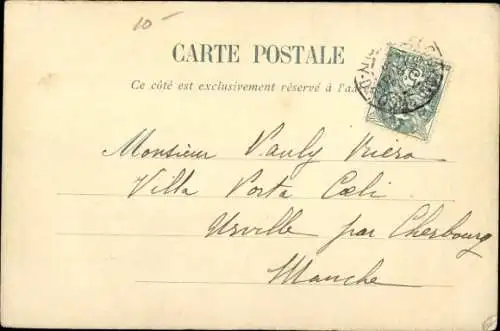 10-
CARTE POSTALE
Ce côté est exclusivement réservé à l'a
Monsieur Pauly Riéra
Villa Porta Cœli
Urville par Cherbourg
Manche